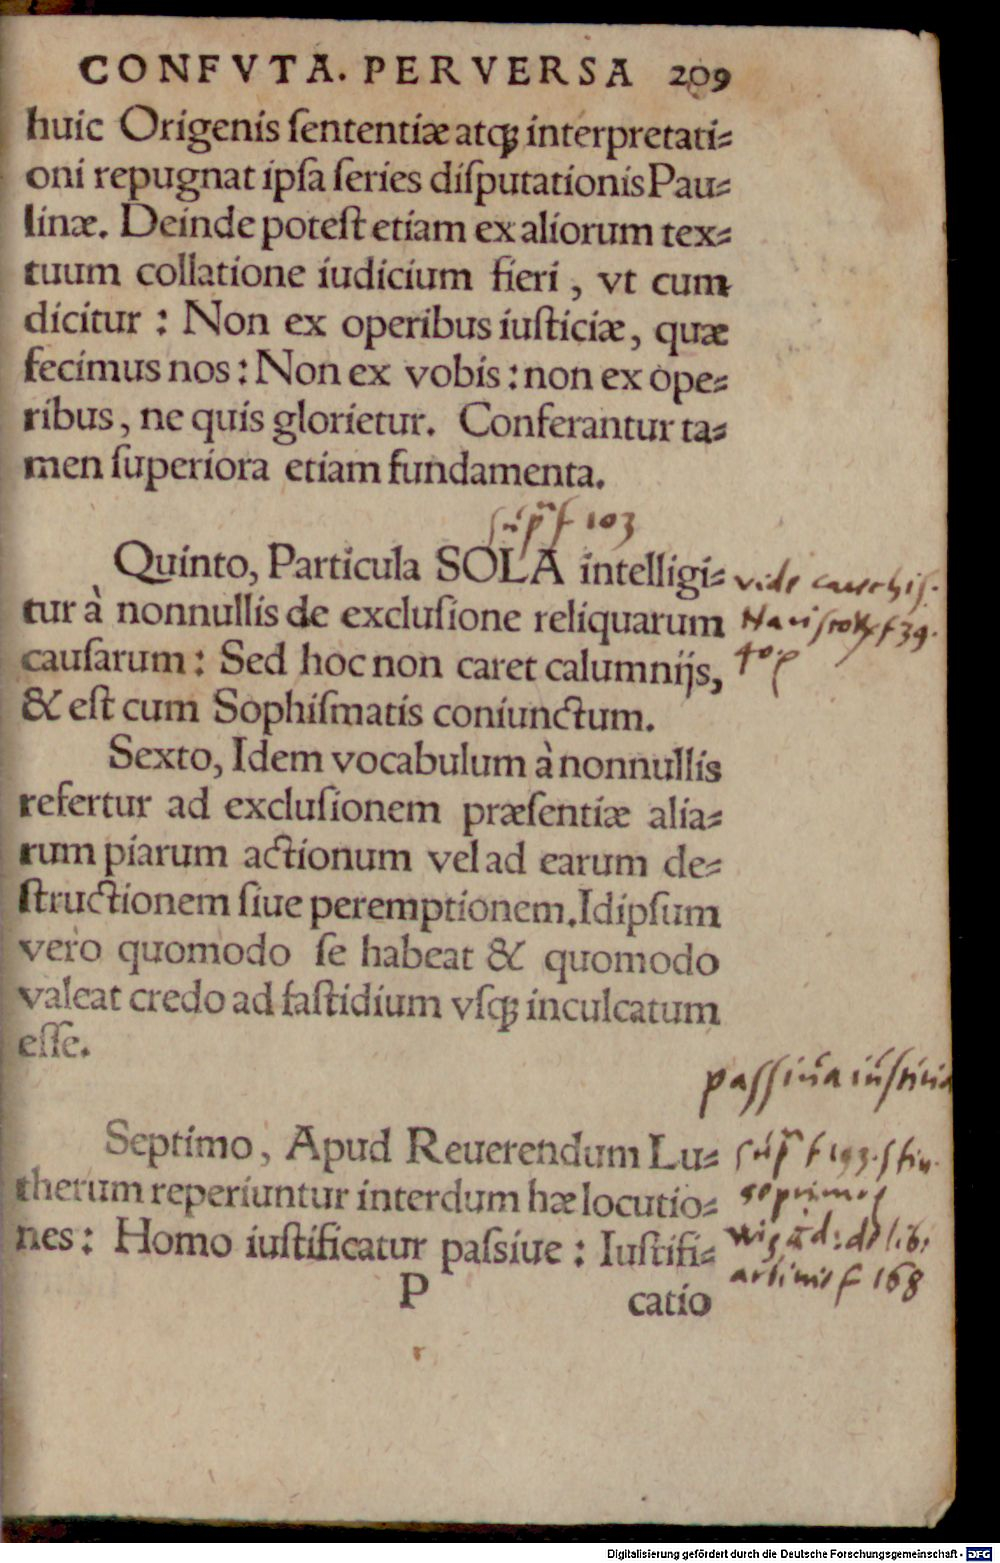 CONFVTA. PERVERSA 209
huic Origenis ſententiæ atq; interpretati⸗
oni repugnat ipſa ſeries diſputationis Pau⸗
linæ. Deinde poteſt etiam ex aliorum tex⸗
tuum collatione iudicium fieri, vt cum
dicitur: Non ex operibus iuſticiæ, quæ
fecimus nos: Non ex vobis: non ex ope⸗
ribus, ne quis glorietur. Conferantur ta⸗
men ſuperiora etiam fundamenta.
f 103
Quinto, Particula SOLA intelligi⸗
tur à nonnullis de excluſione reliquarum
cauſarum: Sed hoc non caret calumnijs,
& eſt cum Sophiſmatis coniunctum.
vide catechiſ.
f 39.
40.
Sexto, Idem vocabulum à nonnullis
refertur ad excluſionem præſentiæ alia⸗
rum piarum actionum vel ad earum de⸗
ſtructionem ſiue peremptionem. Idipſum
vero quomodo ſe habeat & quomodo
valeat credo ad faſtidium vſq; inculcatum
eſſe.
paſſiua iuſticia
Septimo, Apud Reuerendum Lu⸗
therum reperiuntur interdum hæ locutio⸗
nes: Homo iuſtificatur paſsiue: Iuſtifi⸗
f 193.
wigād: de lib:
f 168
P catio
Digitalisierung gefördert durch die Deutsche Forschungsgemeinschaft - DFG